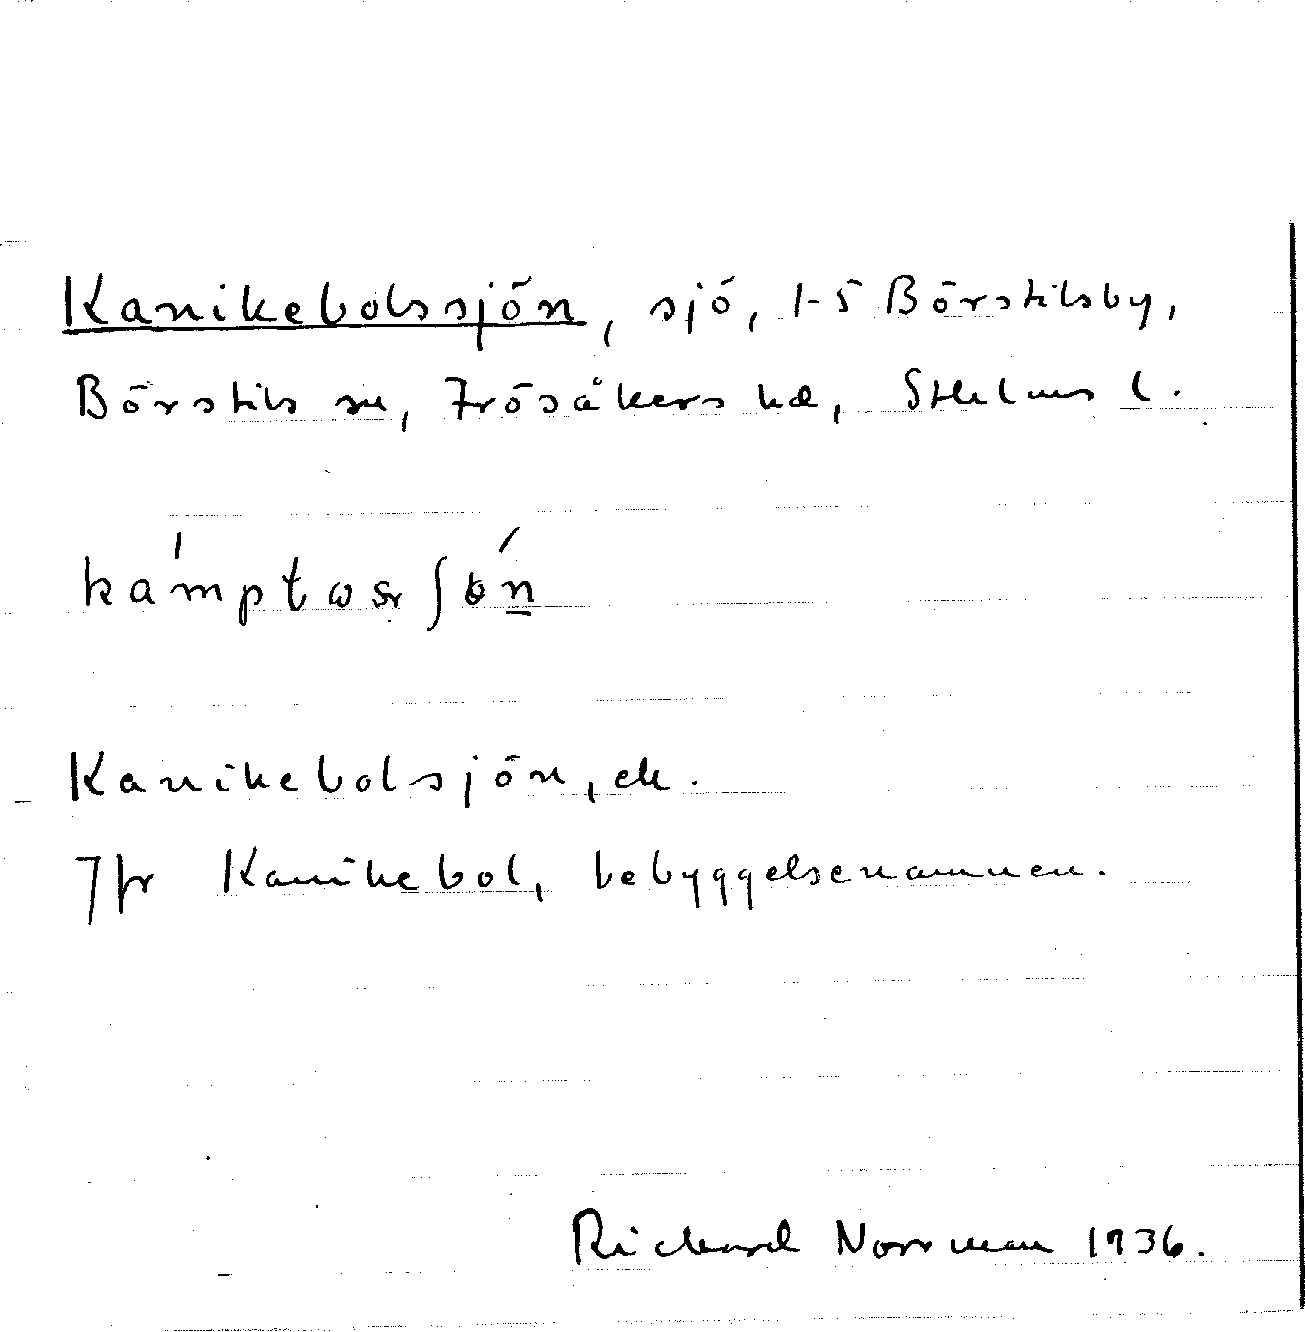 Kanikebolssjön, sjö, 1-5 Börstilsby,
Börstils sn, Frösåkers hd, Sthlms l.
Kanikebolsjön, ek.
Jfr Kanikebol, bebyggelsenamnen.
Richard Norrman 1936.